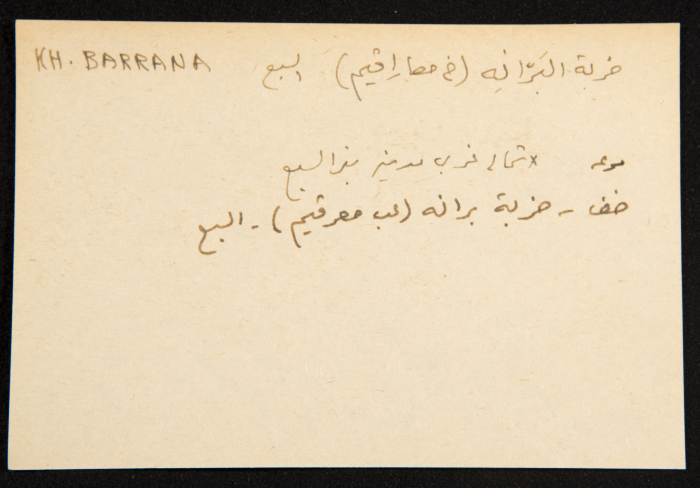 KH. BARRANA خربة البَرّانِه (خ معار اقيم) السبع
موعه × شمالي غربي مدينة بئر السبع
خف - خربة برانه (عب معر قيم) - السبع